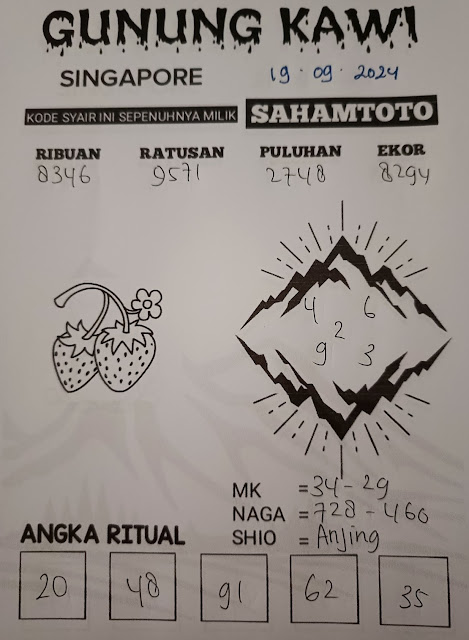 GUNUNG KAWI
SINGAPORE 19 · 09 · 2024
KODE SYAIR INI SEPENUHNYA MILIK SAHAMTOTO
RIBUAN RATUSAN PULUHAN EKOR
8346 9571 2748 8294
4 6
2
9 3
MK = 34 - 29
NAGA = 728 - 460
SHIO = Anjing
ANGKA RITUAL
20 48 91 62 35